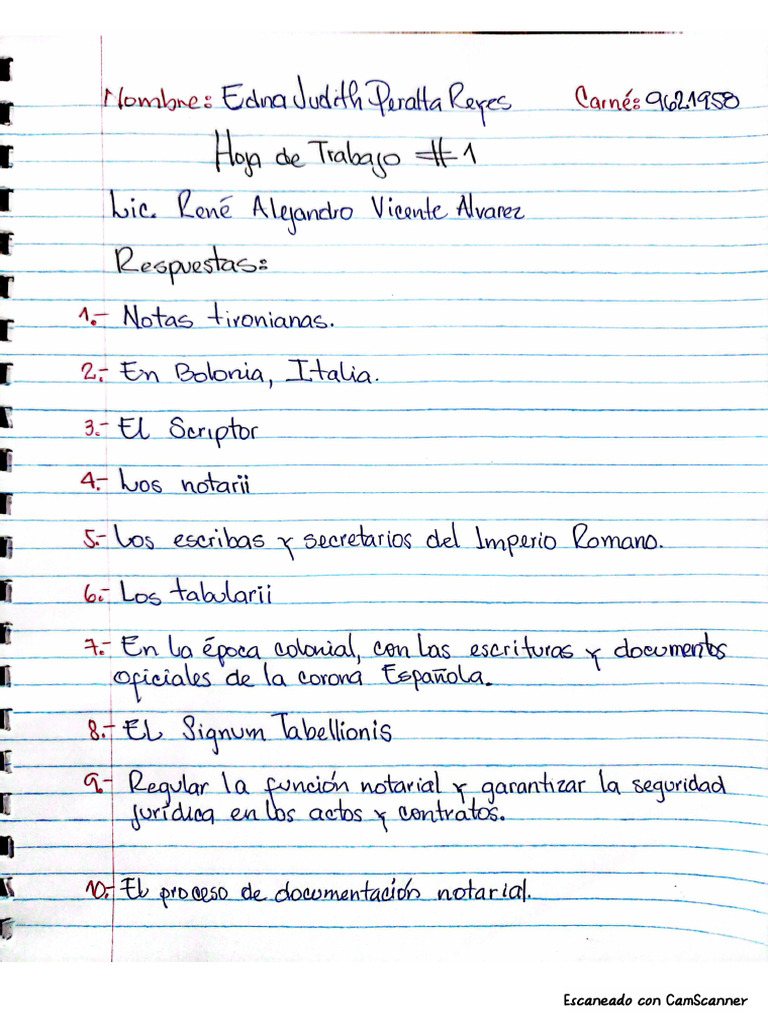 Nombre: Edna Judith Peralta Reyes Carné: 9621958
Hoja de Trabajo #1
Lic. René Alejandro Vicente Alvarez
Respuestas:
1.- Notas tironianas.
2.- En Bolonia, Italia.
3.- El Scriptor
4.- Los notarii
5.- Los escribas y secretarios del Imperio Romano.
6.- Los tabularii
7.- En la época colonial, con las escrituras y documentos
oficiales de la corona Española.
8.- EL Signum Tabellionis
9.- Regular la función notarial y garantizar la seguridad
jurídica en los actos y contratos.
10.- El proceso de documentación notarial.
Escaneado con CamScanner